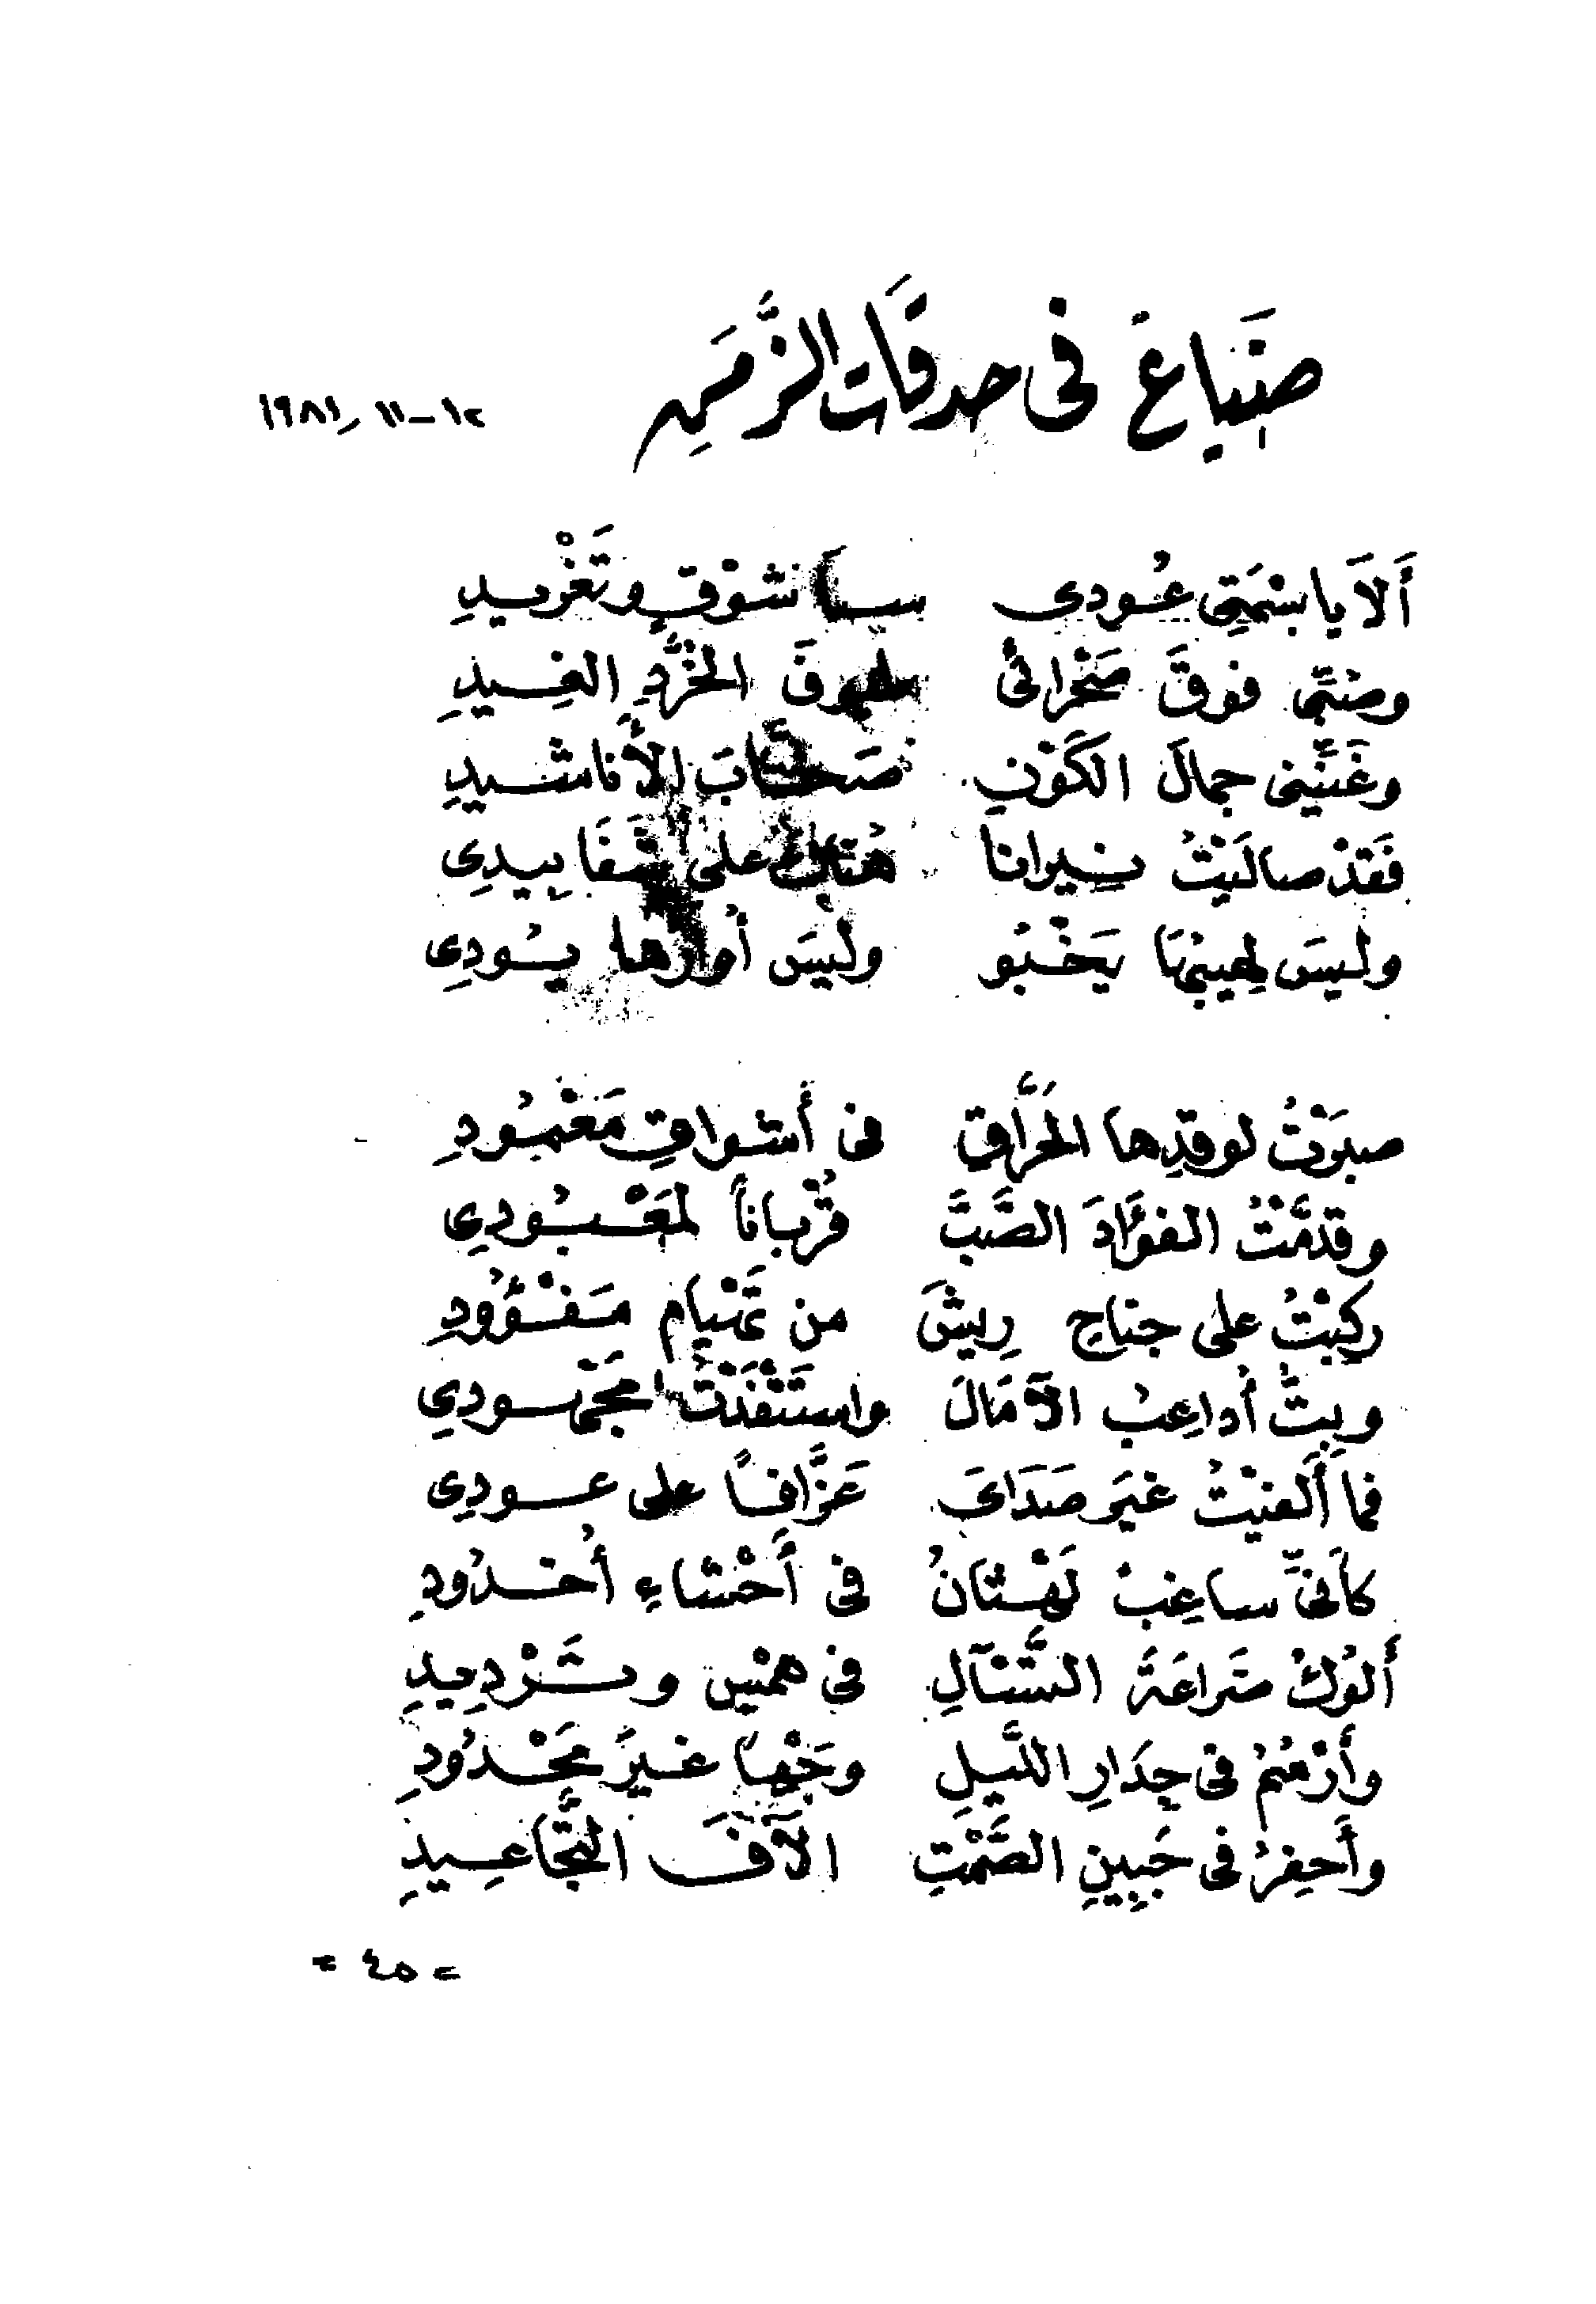 ضَيَاعٌ فى حدقَات الزَّمَنِ
١٢-١١-١٩٨١
أَلاَ يا بسْمَتِى عُودى سنا شوْقٍ وتَغْريدِ
وصُبِّى فوقَ صَحْرائى طيوفَ الخُرَّدِ الغِيدِ
وغَنِّينى جمالَ الكَوْنِ صَخَّابَ الأَناشيدِ
فَقَدْ صاليْتُ نيرانا هُناكَ على شَفَا بيدِى
وليسَ لهيبُهَا يَخْبُو وليسَ أُوارُها يُودِى
صبرْتُ لوقدِها الحَرَّاقِ فى أشواقِ مَعْمُودِ
وقدمَّتُ الفؤَادَ الصَّبَّ قُرْباناً لمَعْبُودِى
ركِبْتُ على جناحِ رِيشَ من تَهْيامِ مَفْؤُودِ
وبِتُّ أُداعِبُ الآمَالَ واستَنْفَذْتُ مَجْهودِى
فما أَلفيْتُ غيَر صَدَاىَ عَزَّافاً على عودِى
كأَنىِّ ساغِبٌ لَهْثَانُ فى أَحْشاءِ أُخدُودِ
أَلوُكُ ضَراعَةَ التَّسْآلِ فى همْسٍ وتَرْدِيدِ
وأَرْقُمُ فى جِدَارِ اللَّيلِ وجْهاً غيرَ مَحْدُودِ
وأَحفِرُ فى جَبِينِ الصَّمْتِ آلافَ التَّجَاعِيدِ
- ٤٥ -